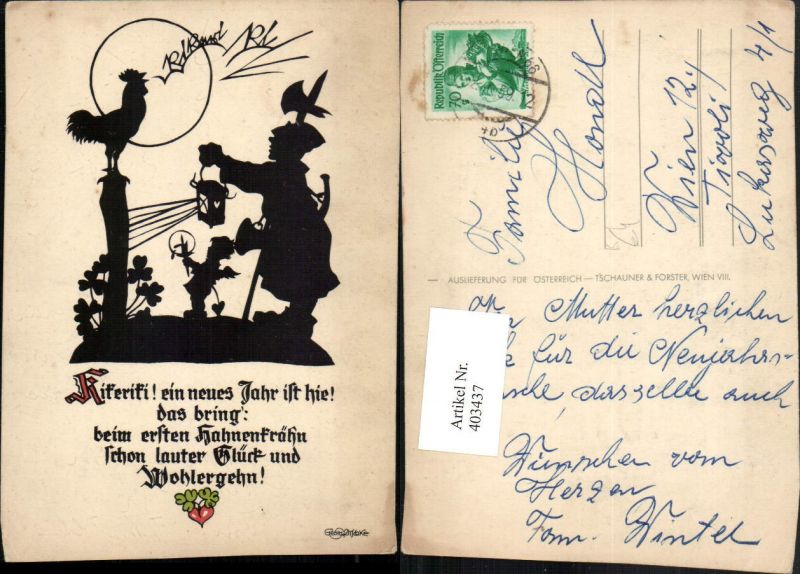 Kikeriki! ein neues Jahr ist hie!
das bring':
beim ersten Hahnenkrähn
schon lauter Glück und
Wohlergehn!
Republik Österreich
70
Familie
Hondl
Wien 12
Tivoli
Lukasweg 4/1
AUSLIEFERUNG FÜR ÖSTERREICH — TSCHAUNER & FORSTER, WIEN VIII.
Mutter herzlichen
für die Neujahrs-
dasselbe auch
Wünschen vom
Herzen
Fam. Wintel
Artikel Nr.
403437